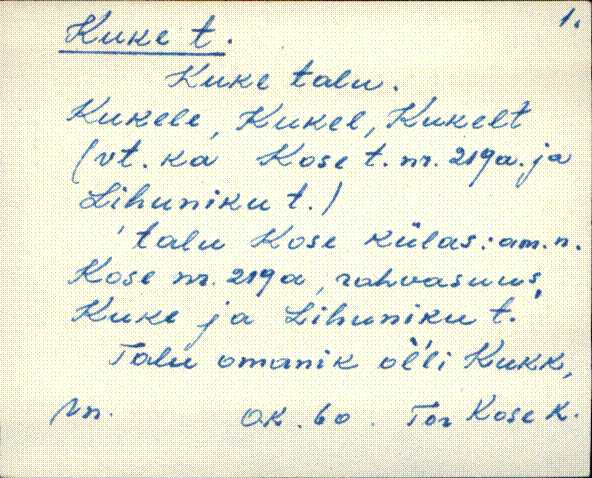 1.
Kuke t.
Kuke talu.
Kukele, Kukel, Kukelt
(vt. ka Kose t. nr. 219a. ja
Lihuniku t.)
talu Kose külas: am. n.
Kose nr. 219a, rahvasuus,
Kuke ja Lihuniku t.
Talu omanik olli Kukk,
Vn. OK. 60. Tor Kose k.